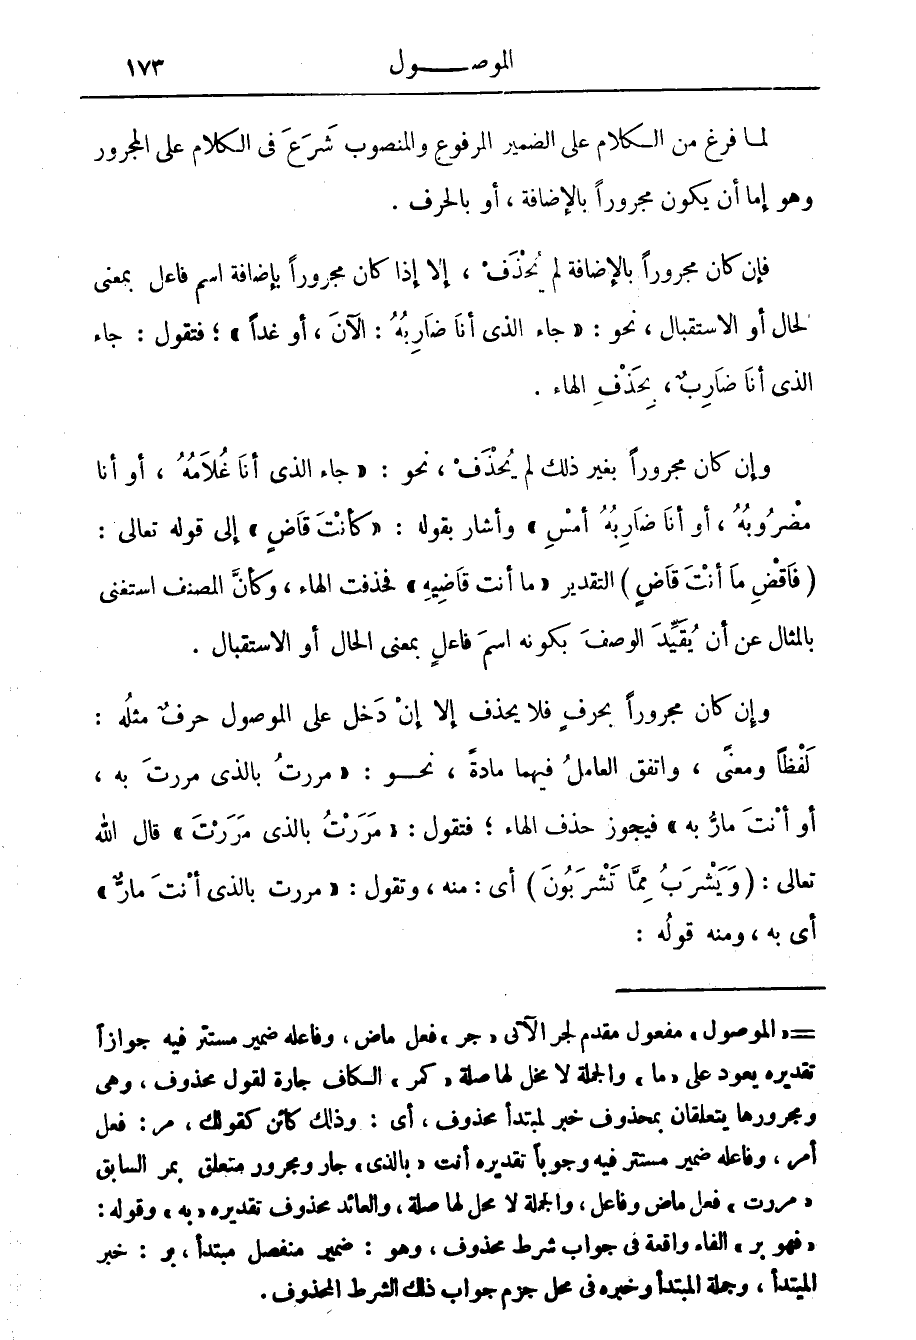 الموصــول ١٧٣
لمــا فرغ من الــكلام على الضمير المرفوع والمنصوب شَرَعَ فى الـكلام على المجرور
وهو إما أن يكون مجروراً بالإضافة ، أو بالحرف .
فإن كان مجروراً بالإضافة لم يُحْذَفْ ، إلا إذا كان مجروراً بإضافة اسم فاعل بمعنى
الحال أو الاستقبال ، نحو : « جاء الذى أنَا ضَارِبُهُ : الآنَ ، أو غداً » ؛ فتقول : جاء
الذى أنَا ضَارِبٌ ، بِحَذْفِ الهاء .
وإن كان مجروراً بغير ذلك لم يُحْذَفْ ، نحو : « جاء الذى أنَا غُلَامُهُ ، أو أنا
مضْرُوبُهُ ، أو أنَا ضَارِبُهُ أمْسِ » وأشار بقوله : « كأنْتَ قَاضٍ » إلى قوله تعالى :
( فَاقْضِ مَا أنْتَ قَاضٍ ) التقدير « ما أنت قَاضِيهِ » فحذفت الهاء ، وكأنَّ المصنف استغنى
بالمثال عن أن يُقَيِّدَ الوصفَ بكونه اسمَ فاعلٍ بمعنى الحال أو الاستقبال .
وإن كان مجروراً بحرفٍ فلا يحذف إلا إنْ دَخل على الموصول حرفٌ مثلُه :
لَفْظاً ومعنًى ، واتفق العاملُ فيهما مادةً ، نحــو : « مررتُ بالذى مررتَ به ،
أو أنْتَ مارٌّ به » فيجوز حذف الهاء ؛ فتقول : « مَرَرْتُ بالذى مَرَرْتَ » قال الله
تعالى : ( وَيَشْرَبُ مِمَّا تَشْرَبُونَ ) أى : منه ، وتقول : « مررت بالذى أنْتَ مارٌّ »
أى به ، ومنه قولُه :
= « الموصول » مفعول مقدم لجر الآتى « جر » فعل ماض ، وفاعله ضمير مستتر فيه جوازاً
تقديره يعود على « ما » والجملة لا محل لها صلة « كمر » الـكاف جارة لقول محذوف ، وهى
ومجرورها يتعلقان بمحذوف خبر لمبتدأ محذوف ، أى : وذلك كائن كقولك ، مر : فعل
أمر ، وفاعله ضمير مستتر فيه وجوباً تقديره أنت « بالذى » جار ومجرور متعلق بمر السابق
« مررت » فعل ماض وفاعل ، والجملة لا محل لها صلة ، والعائد محذوف تقديره « به » وقوله :
« فهو بر » الفاء واقعة فى جواب شرط محذوف ، وهو : ضمير منفصل مبتدأ ، بر : خبر
المبتدأ ، وجملة المبتدأ وخبره فى محل جزم جواب ذلك الشرط المحذوف .